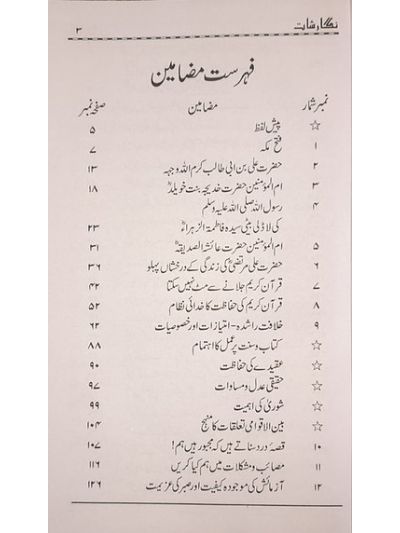 نگارشات ۳
فہرست مضامین
نمبر شمار مضامین صفحہ نمبر
☆ پیش لفظ ۵
۱ فتح مکہ ۷
۲ حضرت علی بن ابی طالب کرم اللہ وجہہ ۱۳
۳ ام المؤمنین حضرت خدیجہ بنت خویلدؓ ۱۸
۴ رسول اللہ صلی اللہ علیہ وسلم
کی لاڈلی بیٹی سیدہ فاطمۃ الزہراءؓ ۲۳
۵ ام المؤمنین حضرت عائشہ الصدیقہؓ ۳۱
۶ حضرت علی مرتضیٰؓ کی زندگی کے درخشاں پہلو ۳۶
۷ قرآن کریم جلانے سے مٹ نہیں سکتا ۴۲
۸ قرآن کریم کی حفاظت کا خدائی نظام ۵۲
۹ خلافت راشدہ - امتیازات اور خصوصیات ۶۲
☆ کتاب و سنت پر عمل کا اہتمام ۸۸
☆ عقیدے کی حفاظت ۹۰
☆ حقیقی عدل و مساوات ۹۷
☆ شوریٰ کی اہمیت ۹۹
☆ بین الاقوامی تعلقات کا منہج ۱۰۴
۱۰ قصۂ درد سناتے ہیں کہ مجبور ہیں ہم! ۱۰۷
۱۱ مصائب و مشکلات میں ہم کیا کریں ۱۱۶
۱۲ آزمائش کی موجودہ کیفیت اور صبر کی عزیمت ۱۲۶